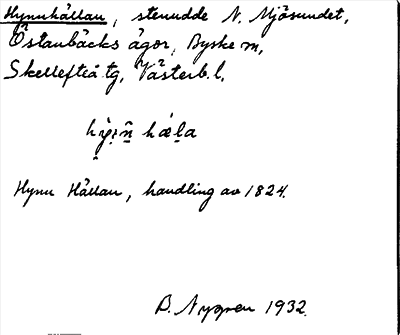 Hynnhällan, stenudde N. Mjösundet,
Östanbäcks ägor, Byske sn,
Skellefteå tg, Västerb. l.
hällan
Hynn Hällan, handling av 1824.
B. Nygren 1932.